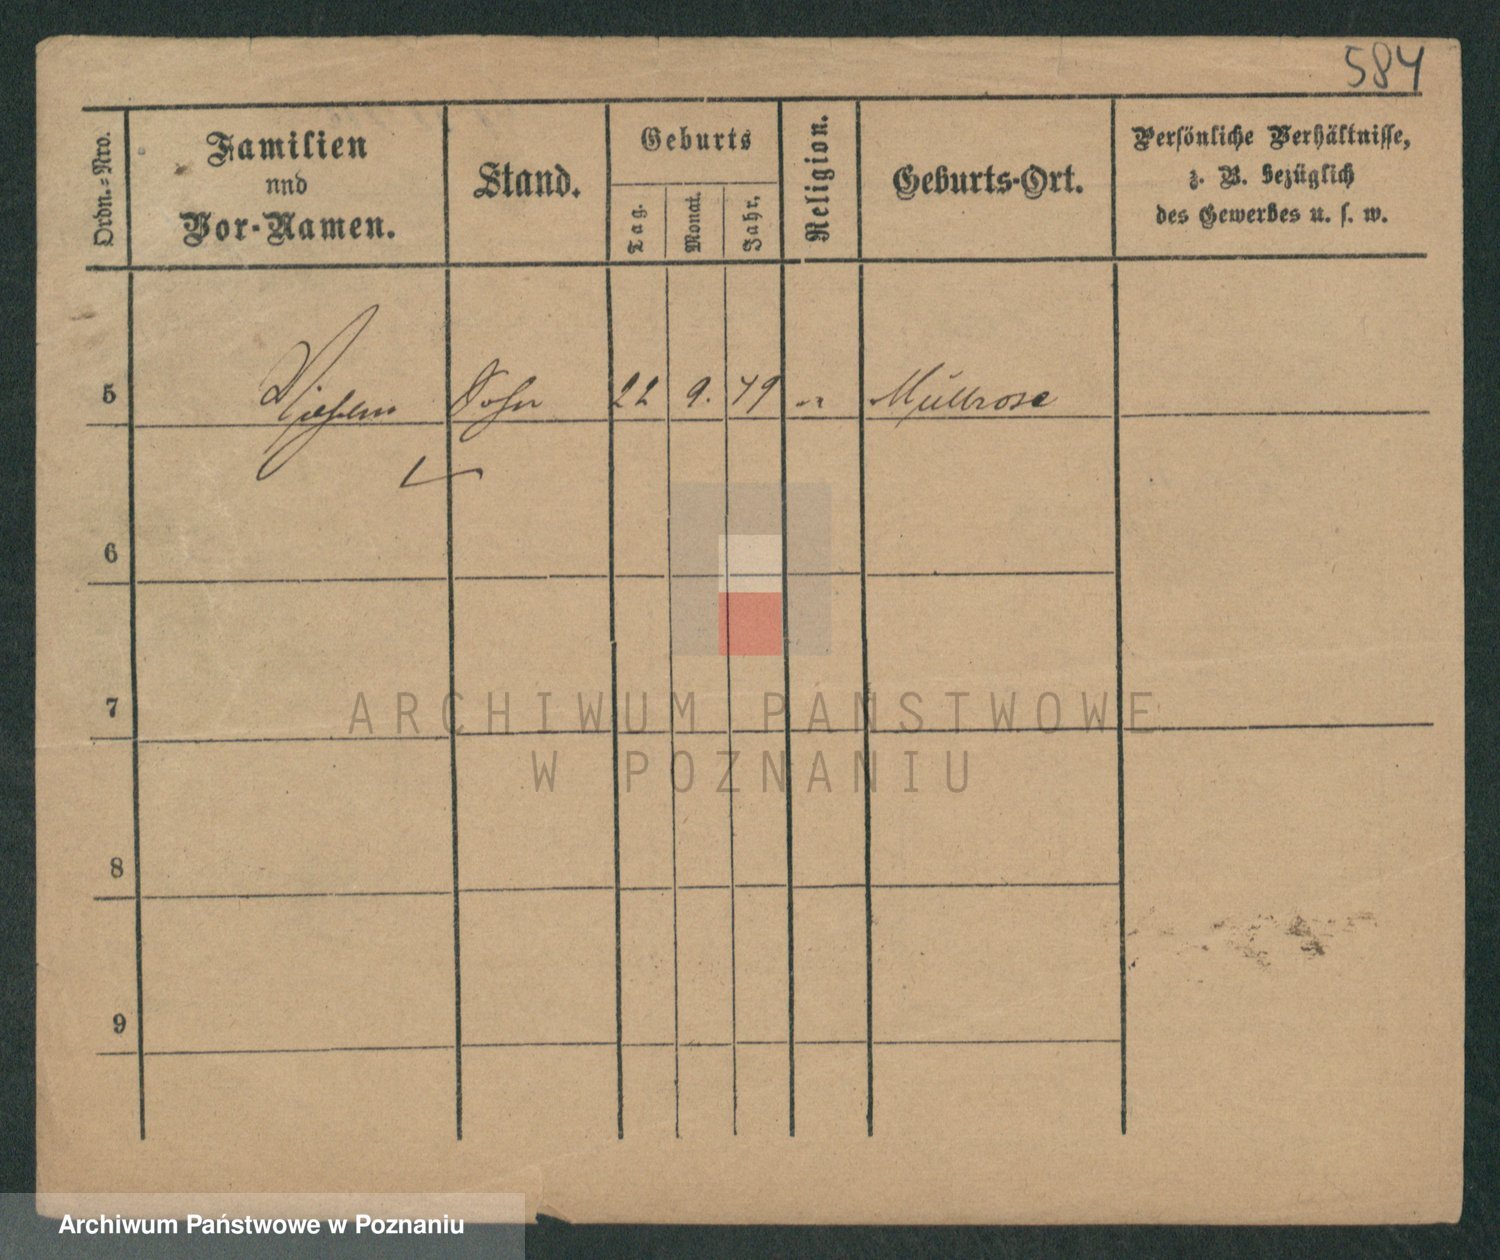 584
Ordn.-Nro.
Familien
und
Vor-Namen.
Stand.
Geburts
Tag.
Monat.
Jahr.
Religion.
Geburts-Ort.
Persönliche Verhältnisse,
z. B. bezüglich
des Gewerbes u. s. w.
5 Wilhelm Sohn 22 9. 79 " Müllrose
6
7
8
9
ARCHIWUM PAŃSTWOWE
W POZNANIU
Archiwum Państwowe w Poznaniu